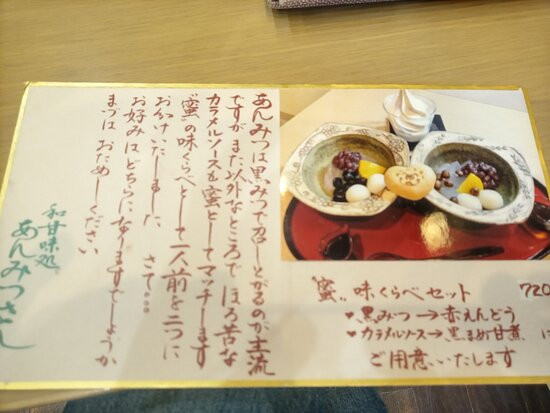 あんみつは黒みつで召し上がるのが主流
ですがまた以外なところでほろ苦な
カラメルソースを蜜としてマッチします
蜜の味くらべとして一人前を二つに
お分けいたしました さて。。。
お好みはどちらになりますでしょうか
まづはおためしください
和甘味処
あんみつさん
"蜜"味くらべセット 720
♥黒みつ→赤えんどう
♥カラメルソース→黒まめ甘煮
ご用意いたします